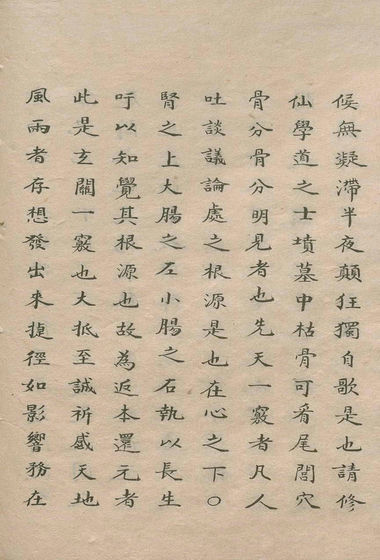 候無凝滯半夜顛狂獨自歌是也請修
仙學道之士墳墓中枯骨可看尾閭穴
骨分骨分明見者也先天一竅者凡人
吐談議論處之根源是也在心之下○
腎之上大腸之左小腸之右執以長生
吁以知覺其根源也故為返本還元者
此是玄關一竅也大抵至誠祈感天地
風雨者存想發出來捷徑如影響務在